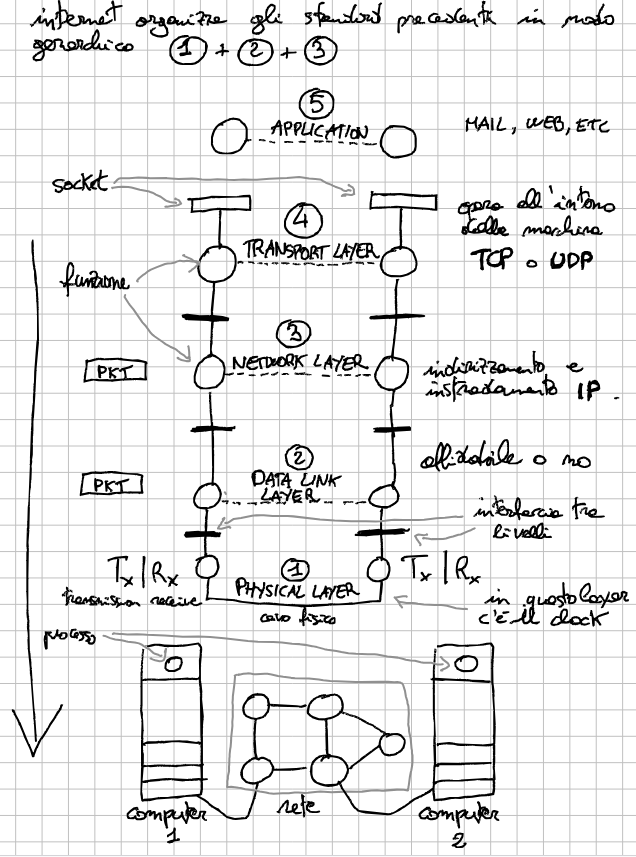 internet organizza gli standard precedenti in modo
gerarchico ① + ② + ③
⑤
APPLICATION
MAIL, WEB, ETC
socket
④
opera all'interno
della macchina
TRANSPORT LAYER
TCP o UDP
funzione
③
NETWORK LAYER
PKT
indirizzamento e
instradamento IP.
②
affidabile o no
DATA LINK
LAYER
PKT
interfaccia tra
livelli
①
Tx | Rx
PHYSICAL LAYER
Tx | Rx
transmission receive
cavo fisico
in questo layer
c'è il clock
processo
rete
computer
1
computer
2